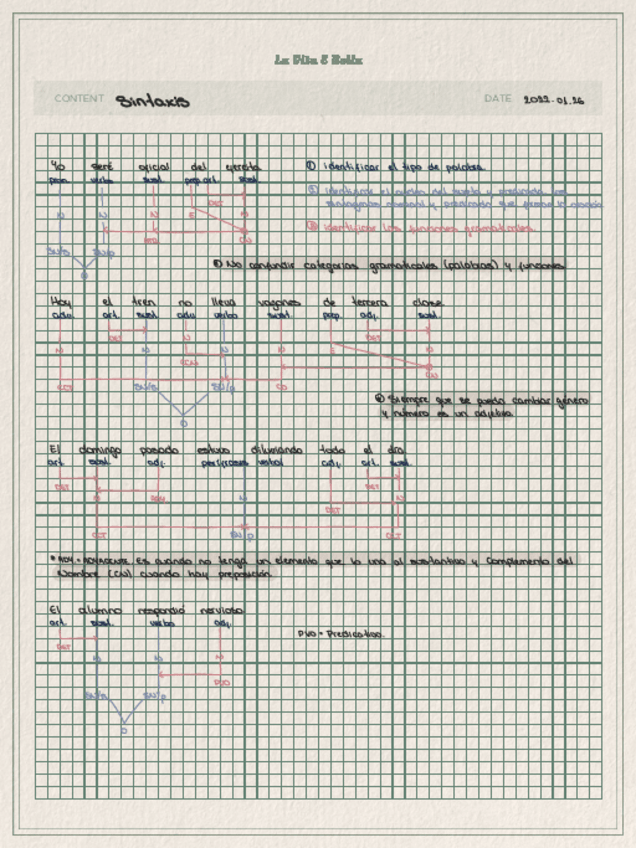 La Vita È Bella
CONTENT Sintaxis DATE 2022.01.26
Yo seré oficial del ejercito
pron. verbo sust. prep.art. sust.
① identificar el tipo de palabra.
② identificar el núcleo del sujeto y predicado, en
sintagma nominal y predicado que
③ identificar las funciones gramaticales.
DET
N N N E N
ATR CN
SN/S SV/P
O
① No confundir categorías gramaticales (palabras) y funciones
Hoy el tren no lleva vagones de tercera clase.
adv. art. sust. adv. verbo sust. prep. adj. sust.
DET DET
N N N N N E N
CCN CN
CCT SN/S SV/P CD
O
① Siempre que se pueda cambiar género
y número es un adjetivo.
El domingo pasado estuvo diluviando todo el día.
art. sust. adj. verbal adj. art. sust.
DET DET
N ADY N N
DET
CCT SV/P CCT
* ADY = ADYACENTE. Es cuando no tenga un elemento que lo una al sustantivo y Complemento del
Nombre (CN) cuando hay preposición.
El alumno respondió nervioso
art. sust. verbo adj.
PVO = Predicativo.
DET
N N N
PVO
SN/S SV/P
O